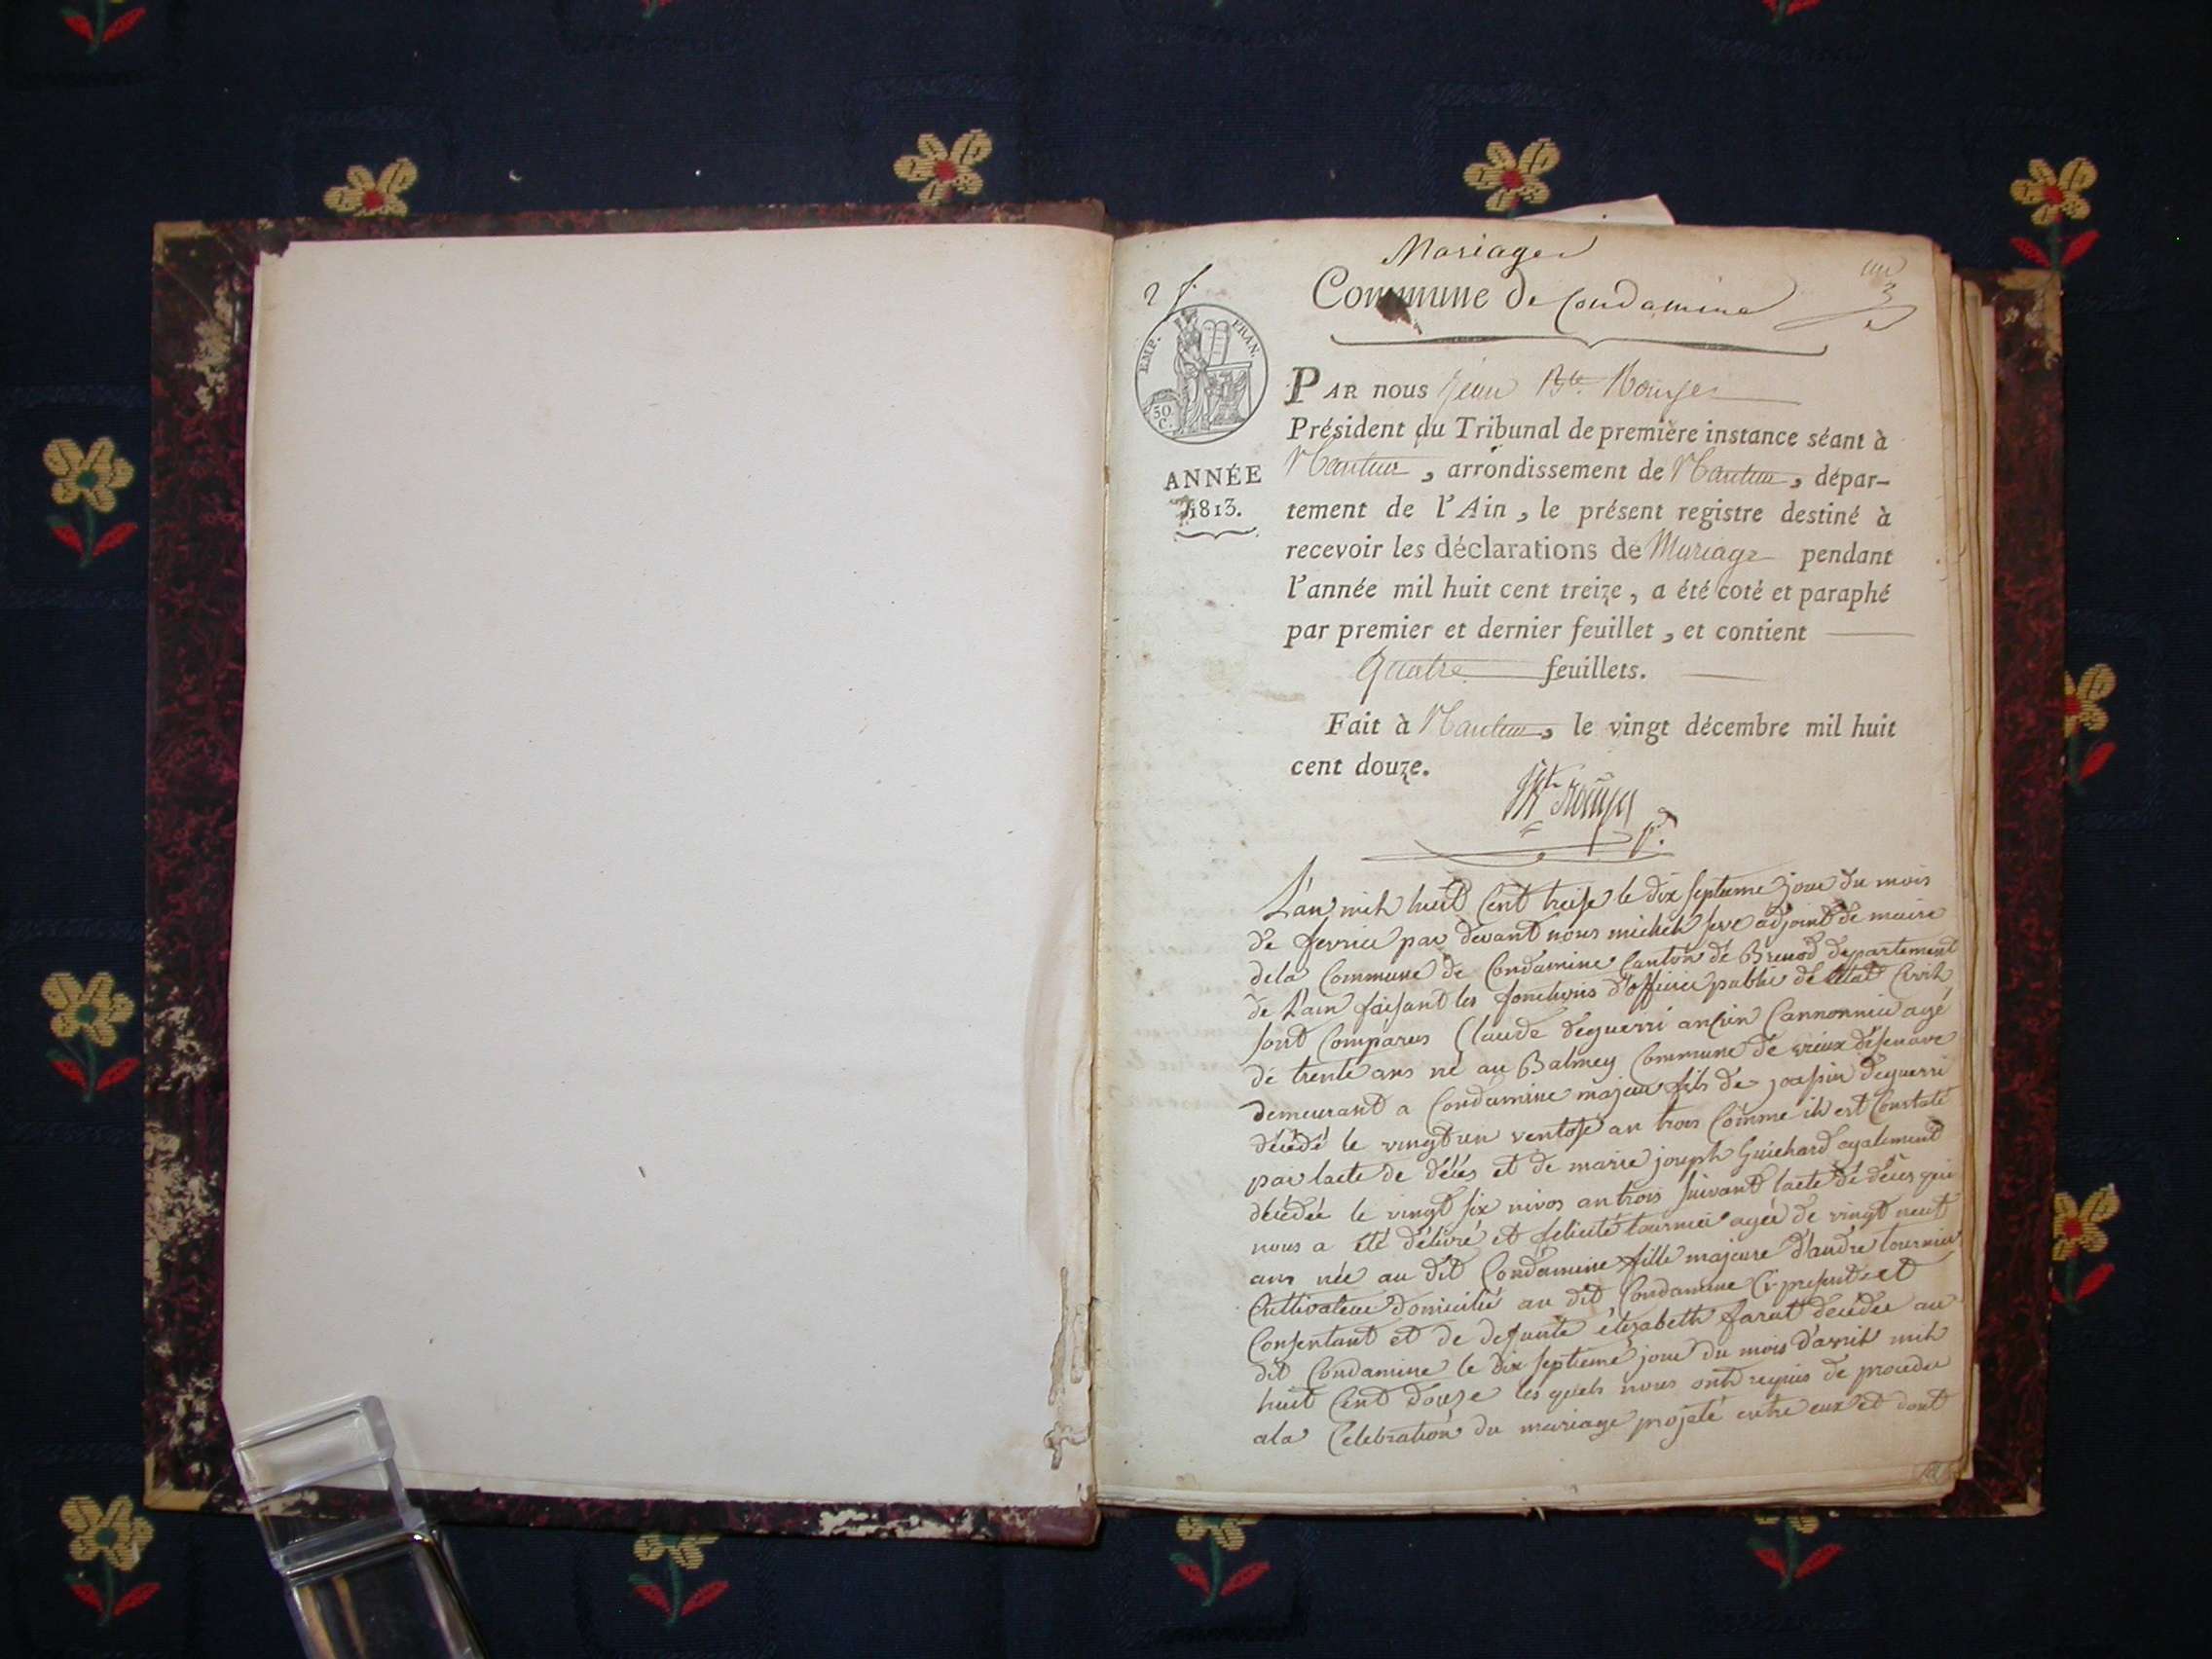 Mariages
Commune de Condamine
un
3
2 f.
EMP. FRAN.
50
C.
ANNÉE
1813.
PAR nous Jean Bte Rouyer
Président du Tribunal de première instance séant à
Nantua, arrondissement de Nantua, dépar-
tement de l'Ain, le présent registre destiné à
recevoir les déclarations de Mariage pendant
l'année mil huit cent treize, a été coté et paraphé
par premier et dernier feuillet, et contient
Quatre feuillets.
Fait à Nantua, le vingt décembre mil huit
cent douze.
L'an mil huit Cent treise le dix septieme jour du mois
de fevrier par devant nous michel seve adjoint de maire
dela Commune de Condamine Canton de Brenod departement
de L'ain faisant les fonctions d'officier public de letat Civil
sont Comparus Claude deguerri ancien Cannonnier agé
de trente ans né au Balmey Commune de vieux disenave
demeurant a Condamine majeur fils de deguerri
décédé le vingt un ventose an trois Comme il est Constaté
par lacte de décés et de marie joseph Guichard egalement
décédée le vingt six nivos an trois suivant lacte de décés qui
nous a été délivré et felicité tournier agée de vingt neuf
ans née au dit Condamine fille majeure d'andré tournier
Cultivateur domicilié au dit Condamine Ci present et
Consentant et de defunte élizabeth farat decédée au
dit Condamine le dix septieme jour du mois d'avril mil
huit Cent douze les quels nous ont requis de proceder
ala Celebration du mariage projeté entre eux et dont